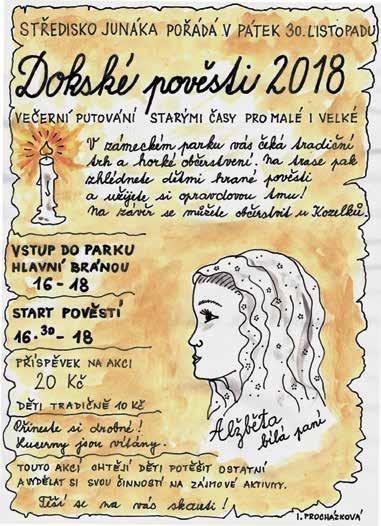 STŘEDISKO JUNÁKA POŘÁDÁ V PÁTEK 30. LISTOPADU
Dokské pověsti 2018
VEČERNÍ PUTOVÁNÍ STARÝMI ČASY PRO MALÉ I VELKÉ
V zámeckém parku vás čeká tradiční
trh a horké občerstvení. Na trase pak
zhlédnete dětmi hrané pověsti
a užijete si opravdovou tmu!
Na závěr se můžete občerstvit u Kozelků.
VSTUP DO PARKU
HLAVNÍ BRÁNOU
16 - 18
START POVĚSTÍ
16.30 - 18
PŘÍSPĚVEK NA AKCI
20 Kč
DĚTI TRADIČNĚ 10 KČ
Přineste si drobné!
Lucerny jsou vítány.
Alžběta
bílá paní
TOUTO AKCÍ CHTĚJÍ DĚTI POTĚŠIT OSTATNÍ
A VYDĚLAT SI SVOU ČINNOSTÍ NA ZÁJMOVÉ AKTIVITY.
Těší se na vás skauti!
I. PROCHÁZKOVÁ